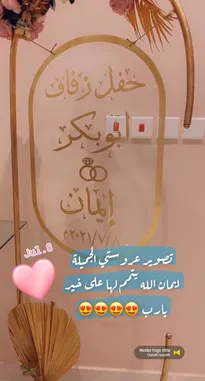 حفل زفاف
ابوبكر
إيمان
٢٠٢١/٧/٨م
Jul.8
تصوير عروستي الجميلة
ايمان الله يتمم لها على خير
يارب 😍😍😍😍